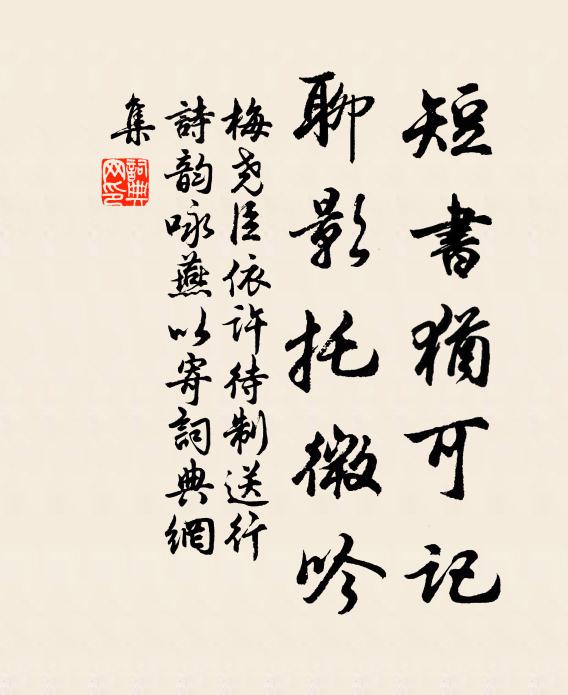 短書猶可記
聊影托微吟
梅尧臣依许待制送行
詩韵咏燕以寄詞典網
集
詞典
网印